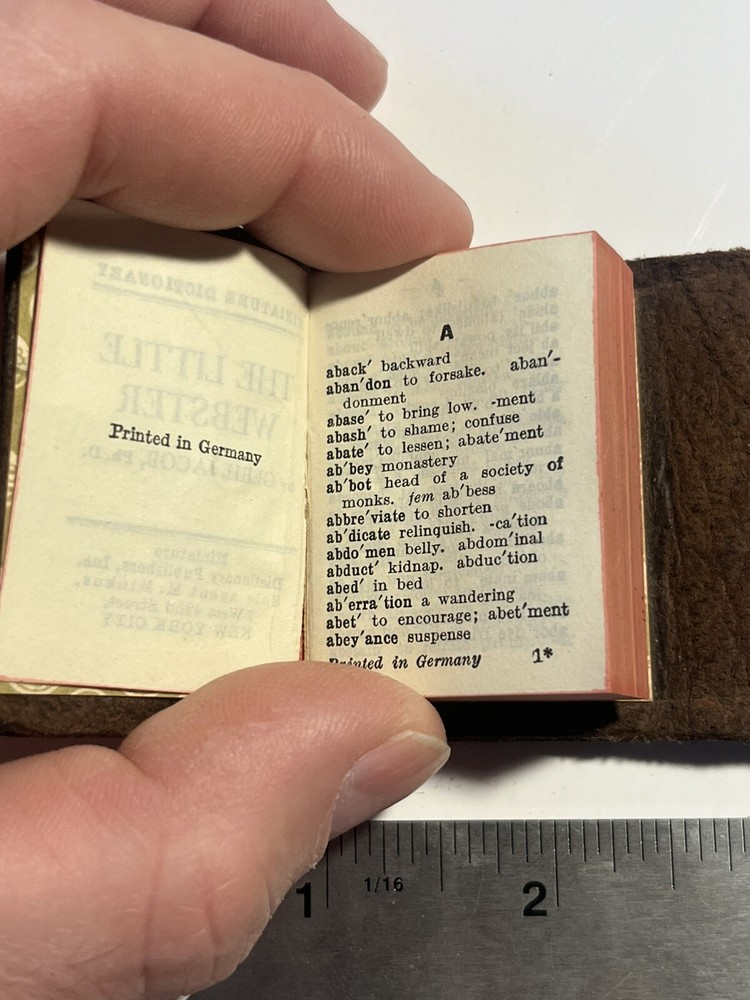 Printed in Germany
A
aback′ backward
aban′don to forsake. aban′-
donment
abase′ to bring low. -ment
abash′ to shame; confuse
abate′ to lessen; abate′ment
ab′bey monastery
ab′bot head of a society of
monks. fem ab′bess
abbre′viate to shorten
ab′dicate relinquish. -ca′tion
abdo′men belly. abdom′inal
abduct′ kidnap. abduc′tion
abed′ in bed
ab′erra′tion a wandering
abet′ to encourage; abet′ment
abey′ance suspense
Printed in Germany 1*
MINIATURE DICTIONARY
THE LITTLE
WEBSTER
Miniature
Dictionary Publishers, Inc.
Sole agent M. Minkus,
NEW YORK CITY
1 1/16 2